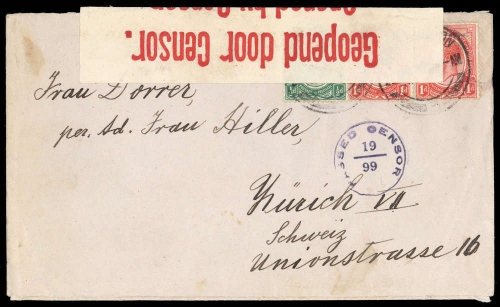 Opened by Censor.
Geopend door Censor.
½d 1d 1d
Frau Dorrer,
per. Ad. Frau Hiller,
PASSED CENSOR
19
99
Zürich VII
Schweiz
Unionstrasse 16